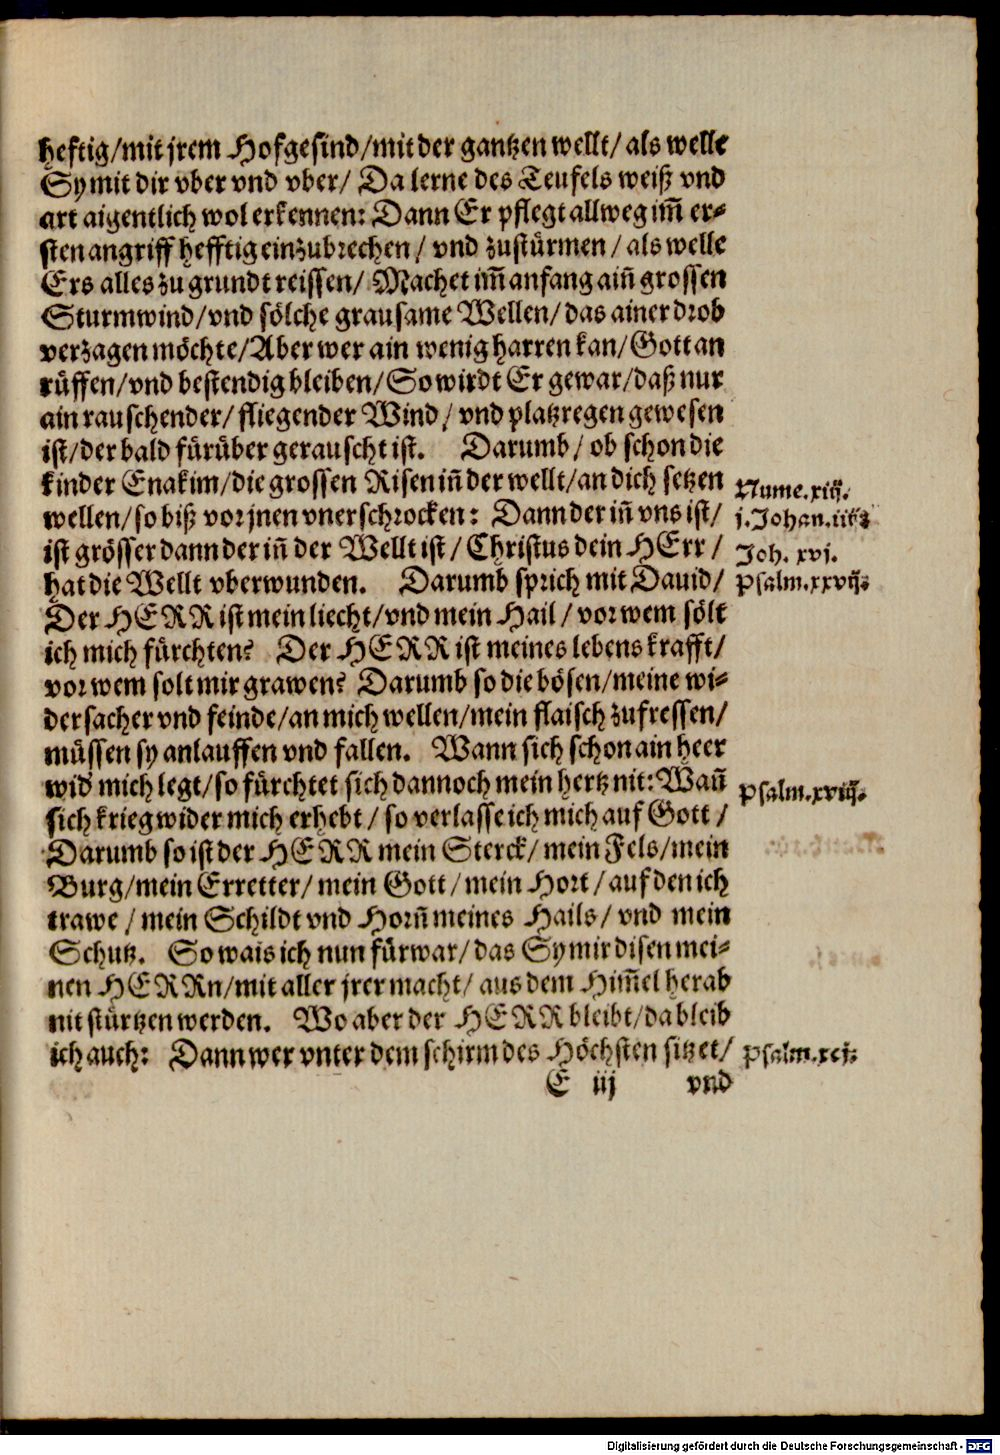 heftig/mit jrem Hofgesind/mit der gantzen wellt/ als welle
Sy mit dir vber vnd vber/ Da lerne des Teufels weiß vnd
art aigentlich wol erkennen: Dann Er pflegt allweg im̃ er-
sten angriff hefftig einzubrechen/ vnd zustürmen/ als welle
Ers alles zu grundt reissen/ Machet im̃ anfang ain̄ grossen
Sturmwind/vnd sölche grausame Wellen/ das ainer drob
verzagen möchte/Aber wer ain wenig harren kan/Gott an
rüffen/vnd bestendig bleiben/So wirdt Er gewar/daß nur
ain rauschender/ fliegender Wind/ vnd platzregen gewesen
ist/der bald fürüber gerauscht ist. Darumb/ ob schon die
kinder Enakim/die grossen Risen in̄ der wellt/an dich setzen
Nume.xiij.
wellen/so biß vor jnen vnerschrocken: Dann der in̄ vns ist/
j.Johan.iiij
ist grösser dann der in̄ der Wellt ist/ Christus dein HErr/
Joh. xvj.
hat die Wellt vberwunden. Darumb sprich mit Dauid/
Psalm.xxvij.
Der HERR ist mein liecht/vnd mein Hail/ vor wem sölt
ich mich fürchten? Der HERR ist meines lebens krafft/
vor wem solt mir grawen? Darumb so die bösen/meine wi-
dersacher vnd feinde/an mich wellen/mein flaisch zufressen/
müssen sy anlauffen vnd fallen. Wann sich schon ain heer
wid' mich legt/so fürchtet sich dannoch mein hertz nit: Wan̄
Psalm.xviij.
sich krieg wider mich erhebt/ so verlasse ich mich auf Gott/
Darumb so ist der HERR mein Sterck/mein Fels/mein
Burg/mein Erretter/mein Gott/mein Hort/auf den ich
trawe/mein Schildt vnd Horn̄ meines Hails/ vnd mein
Schutz. So wais ich nun fürwar/das Sy mir disen mei-
nen HERRn/mit aller jrer macht/ aus dem Him̄el herab
nit stürtzen werden. Wo aber der HERR bleibt/da bleib
ich auch: Dann wer vnter dem schirm des Höchsten sitzet/
Psalm.xcj.
E iij vnd
Digitalisierung gefördert durch die Deutsche Forschungsgemeinschaft - DFG